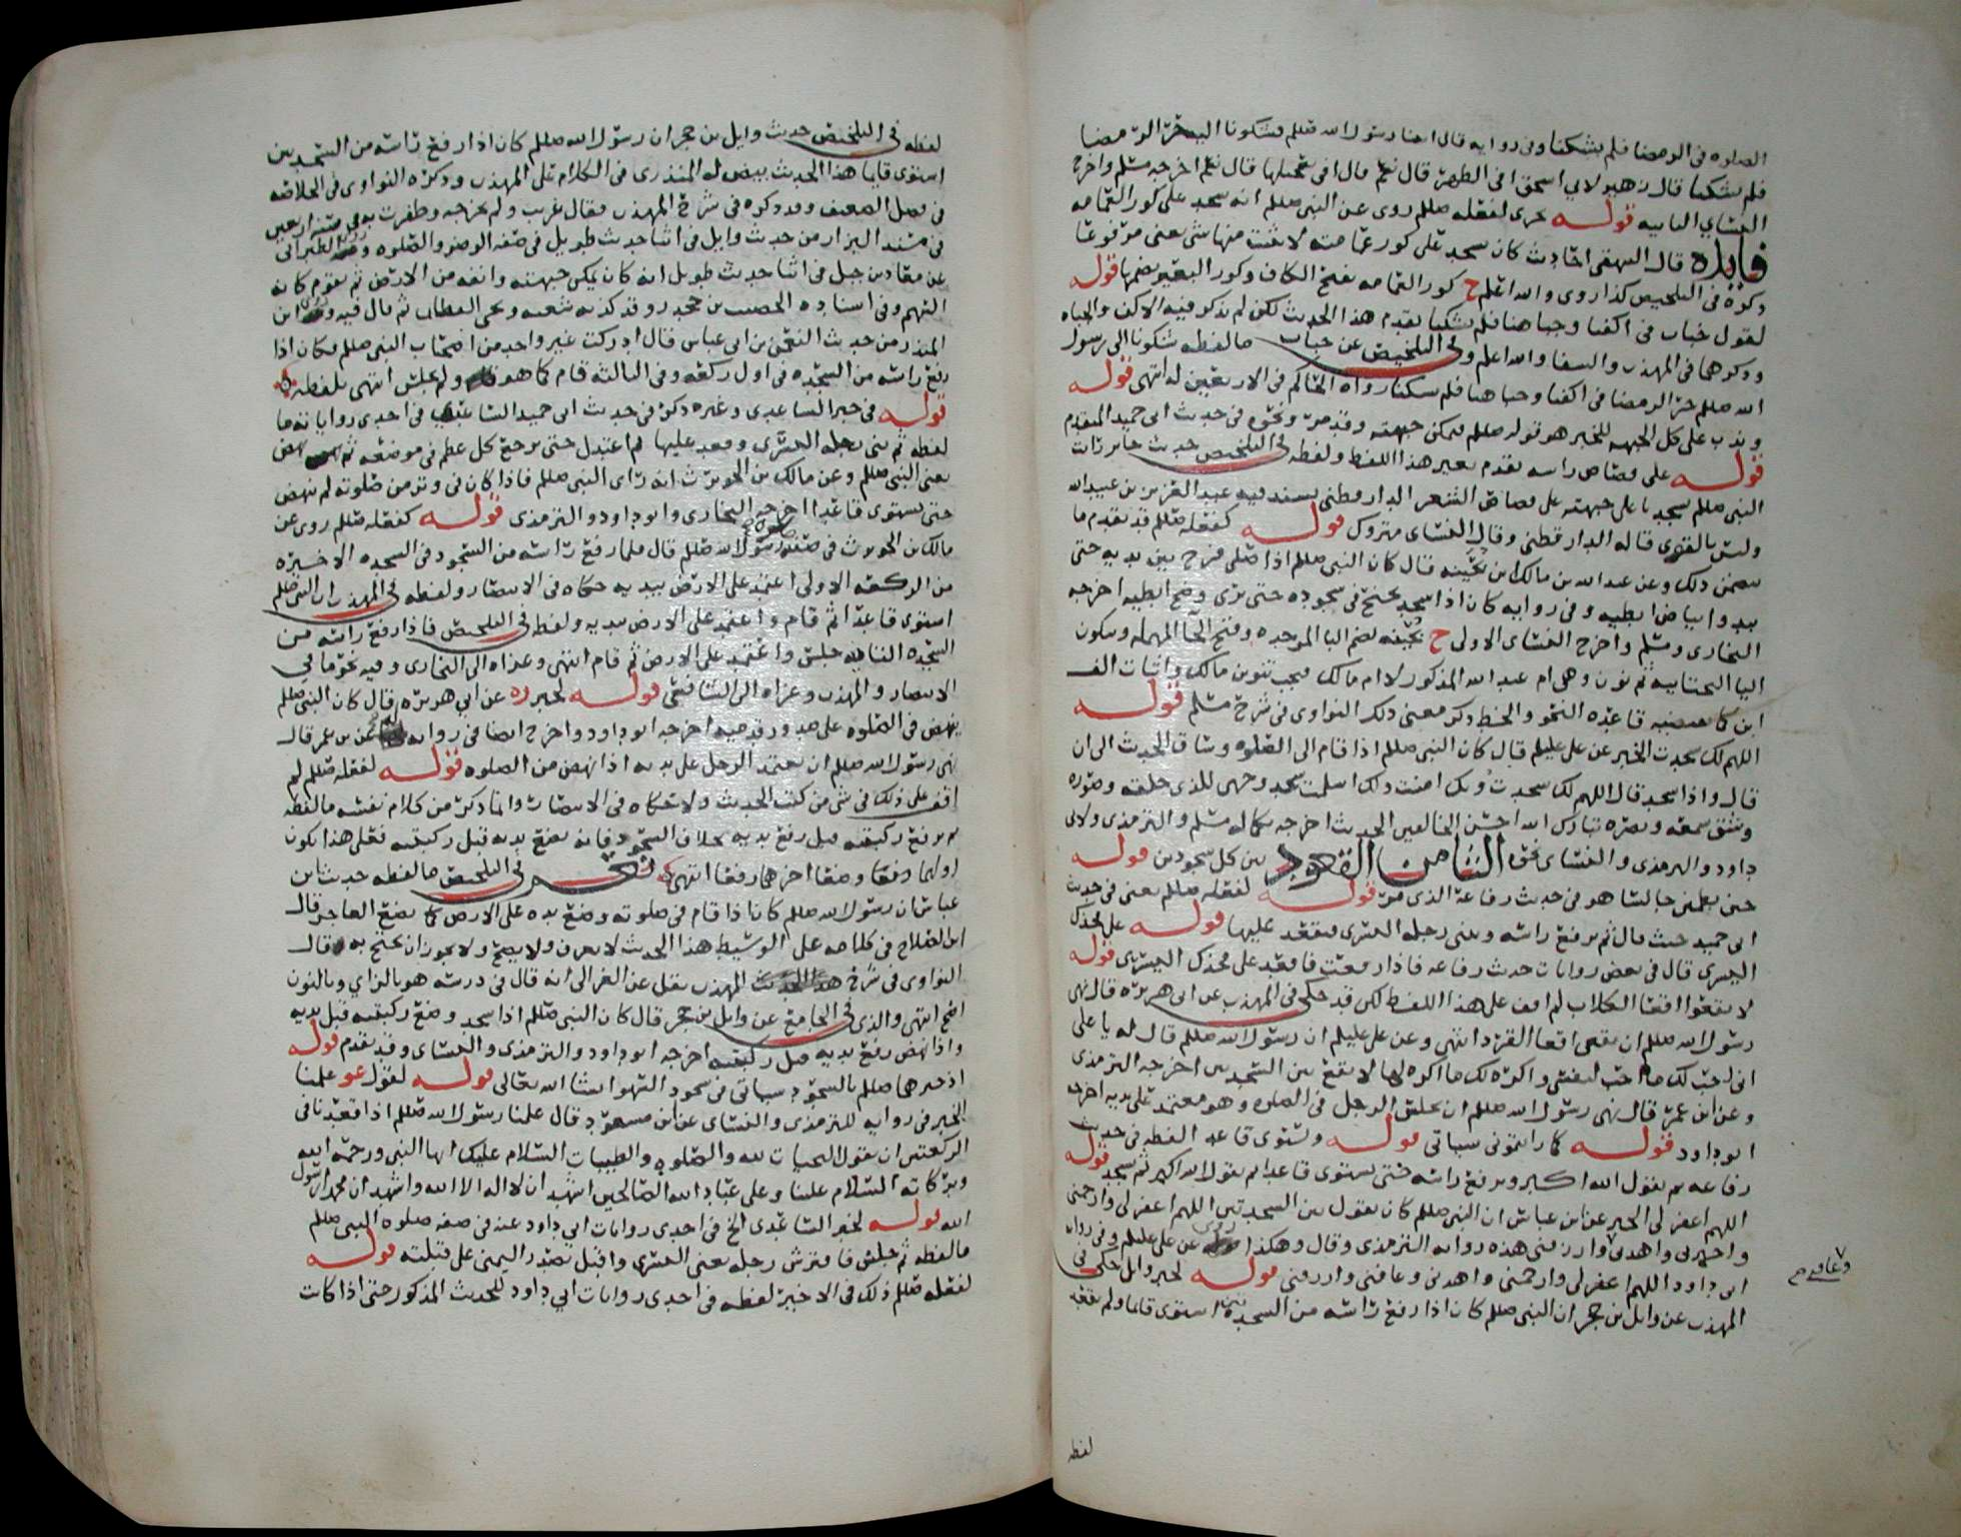 الصلوه في الرمضا فلم يشكنا وفي روايه قال اتينا رسول الله صللم فشكونا اليه حرّ الرّمضا
فلم يشكنا قال زهير لابي اسحق افي الظهر قال نعم قال افي تعجيلها قال نعم اخرجه مسلم واخرج
النسائي الثانيه قوله خبري لفعله صللم روى عن النبي صللم انه سجد على كور العمامه
فايده قال البيهقي احاديث كان يسجد على كور عمامته لا يثبت منها شي يعني مرفوعًا
ذكره في التلخيص كذا روي والله اعلم ح كور العمامه بفتح الكاف وكور البعير بضمها قوله
لقول خباب في اكفنا وجباهنا فلم يشكنا تقدم هذا الحديث لكن لم يذكر فيه الاكف والجباه
وذكرهما في المهذب والشفا والله اعلم وفي التلخيص عن خباب ما لفظه شكونا الى رسول
الله صللم حرّ الرمضا في اكفنا وجباهنا فلم يشكنا رواه الحاكم في الاربعين له انتهى قوله
وندب على كل الجبهه للخبر هو قوله صللم فمكن جبهته وقد مرّ ونحوه في حديث ابي حميد المتقدم
قوله على قصاص راسه تقدم بغير هذا اللفظ ولفظه في التلخيص حديث جابر رايت
النبي صللم سجد باعلى جبهته على قصاص الشعر الدارقطني بسند فيه عبد العزيز بن عبيد الله
وليس بالقوي قاله الدارقطني وقال النسائي متروك قوله كفعله صللم قد تقدم ما
يتضمن ذلك وعن عبد الله بن مالك ابن بُحَيْنه قال كان النبي صللم اذا صلى فرج بين يديه حتى
يبدوا بياض ابطيه وفي روايه كان اذا سجد يجنح في سجوده حتى يرى وضح ابطيه اخرجه
البخاري ومسلم واخرج النسائي الاولى ح بُحَيْنه بضم البا الموحده وفتح الحا المهمله وسكون
اليا التحتانيه ثم نون وهي ام عبد الله المذكور لا ام مالك فيجب تنوين مالك واثبات الف
ابن كما تقتضيه قاعده النحو والخط ذكر معنى ذلك النواوي في شرح مسلم قوله
اللهم لك سجدت الخبر عن علي عليلم قال كان النبي صللم اذا قام الى الصلوه وساق الحديث الى ان
قال واذا سجد قال اللهم لك سجدتُ وبك امنت ولك اسلمت سجد وجهي للذي خلقه وصوّره
وشق سمعه وبصره تبارك الله احسن الخالقين الحديث اخرجه بكماله مسلم والترمذي ولابي
داود والترمذي والنسائي نحوه الثامن القعود بين كل سجودين قوله
حتى يطمئن جالسًا هو في حديث رفاعه الذي مرّ قوله لفعله صللم يعني في حديث
ابي حميد حيث قال ثم يرفع راسه ويثني رجله اليسرى فيقعد عليها قوله على فخذك
اليسرى قال في بعض روايات حديث رفاعه فاذا رفعت فاقعد على فخذك اليسرى قوله
لا تقعوا اقعا الكلاب لم اقف على هذا اللفظ لكن قد حكى في المهذب عن ابي هريره قال نهى
رسول الله صللم ان نقعي اقعا القرد انتهى وعن علي عليلم ان رسول الله صللم قال له يا علي
اني احبّ لك ما احب لنفسي واكره لك ما اكره لها لا تقع بين السجدتين اخرجه الترمذي
وعن ابن عمر قال نهى رسول الله صللم ان يجلس الرجل في الصلوه وهو معتمد على يديه اخرجه
ابو داود قوله كما رايتموني سياتي قوله وتستوي قاعدا لفظه في حديث
رفاعه ثم يقول الله اكبر ويرفع راسه حتى يستوي قاعدا ثم يقول الله اكبر ثم يسجد قوله
اللهم اغفر لي الخبر عن ابن عباس ان النبي صللم كان يقول بين السجدتين اللهم اغفر لي وارحمني
واجبرني واهدني وارزقني هذه روايه الترمذي وقال وهكذا روي عن علي عليلم وفي روايه
ابي داود اللهم اغفر لي وارحمني واهدني وعافني وارزقني قوله لخبر وائل حكى في
المهذب عن وائل بن حجر ان النبي صللم كان اذا رفع راسه من السجده استوى قائما ولم يقعد
وعافني
لفظه
لفظه في التلخيص حديث وايل بن حجر ان رسول الله صللم كان اذا رفع راسه من السجدتين
استوى قايما هذا الحديث بيض له المنذري في الكلام على المهذب وذكره النواوي في الخلاصه
في فصل الضعيف وقد ذكره في شرح المهذب فقال غريب ولم يخرجه وظفرت به في سنه اربعين
في مسند البزار من حديث وايل في اثنا حديث طويل في صفه الوضو والصلوه وروى الطبراني
عن معاذ بن جبل في اثنا حديث طويل انه كان يمكن جبهته وانفه من الارض ثم يقوم كانه
السهم وفي اسناده الخصيب بن جحدر وقد كذبه شعبه ويحيى القطان ثم قال فيه وروى ابن
المنذر من حديث النعمن بن ابي عياش قال ادركت غير واحد من اصحاب النبي صللم فكان اذا
رفع راسه من السجده في اول ركعه وفي الثالثه قام كما هو ولم يجلس انتهى بلفظه
قوله في خبر الساعدي وغيره ذكره في حديث ابي حميد الساعدي في احدى رواياته ما
لفظه ثم ثنى رجله اليسرى وقعد عليها ثم اعتدل حتى يرجع كل عظم في موضعه ثم نهض
يعني النبي صللم وعن مالك بن الحويرث انه راى النبي صللم فاذا كان في وتر من صلوته لم ينهض
حتى يستوي قاعدا اخرجه البخاري وابو داود والترمذي قوله كفعله صللم روي عن
مالك بن الحويرث في صفه صلوه رسول الله صللم قال فلما رفع راسه من السجود في السجده الاخيره
من الركعه الاولى اعتمد على الارض بيديه حكاه في الانتصار ولفظه في المهذب ان النبي صللم
استوى قاعدًا ثم قام واعتمد على الارض بيديه ولفظه في التلخيص فاذا رفع راسه من
السجده الثانيه جلس واعتمد على الارض ثم قام انتهى وعزاه الى البخاري وفيه نحو ما في
الانتصار والمهذب وعزاه الى الشافعي قوله لخبر ره عن ابي هريره قال كان النبي صللم
ينهض في الصلوه على صدور قدميه اخرجه ابو داود واخرج ايضا في روايه عن ابن عمر قال
نهى رسول الله صللم ان يعتمد الرجل على يديه اذا نهض من الصلوه قوله لفعله صللم لم
اقف على ذلك في شي من كتب الحديث ولا حكاه في الانتصار وانما ذكره من كلام نفسه ما لفظه
ثم يرفع ركبتيه قبل رفع يديه بخلاف السجود فانه يضع يديه قبل ركبتيه فعلى هذا يكون
اولهما وضعًا اخرهما رفعا انتهى في التلخيص ما لفظه حديث ابن
عباس ان رسول الله صللم كان اذا قام في صلوته وضع يده على الارض كما يضع العاجن قال
ابن الصلاح في كلامه على الوسيط هذا الحديث لا يعرف ولا يصح ولا يجوز ان يحتج به وقال
النواوي في شرح المهذب نقل عن الغزالي انه قال في درسه هو بالزاي وبالنون
اصح انتهى والذي في الجامع عن وايل بن حجر قال كان النبي صللم اذا سجد وضع ركبتيه قبل يديه
واذا نهض رفع يديه قبل ركبتيه اخرجه ابو داود والترمذي والنسائي وقد تقدم قوله
اذ جبرهما صللم بالسجود سياتي في سجود السهو انشا الله تعالى قوله لقول عو علمنا
الخبر في روايه للترمذي والنسائي عن ابن مسعود قال علمنا رسول الله صللم اذا قعدنا في
الركعتين ان نقول التحيات لله والصلوات والطيبات السلام عليك ايها النبي ورحمه الله
وبركاته السلام علينا وعلى عباد الله الصالحين اشهد ان لا اله الا الله واشهد ان محمدا رسول
الله قوله لخبر الساعدي الخ في احدى روايات ابي داود عنه في صفه صلوه النبي صللم
ما لفظه ثم جلس فافترش رجله يعني اليسرى واقبل بصدر اليمنى على قبلته قوله
لفعله صللم ذلك في الاخيره لفظه في احدى روايات ابي داود للحديث المذكور حتى اذا كانت